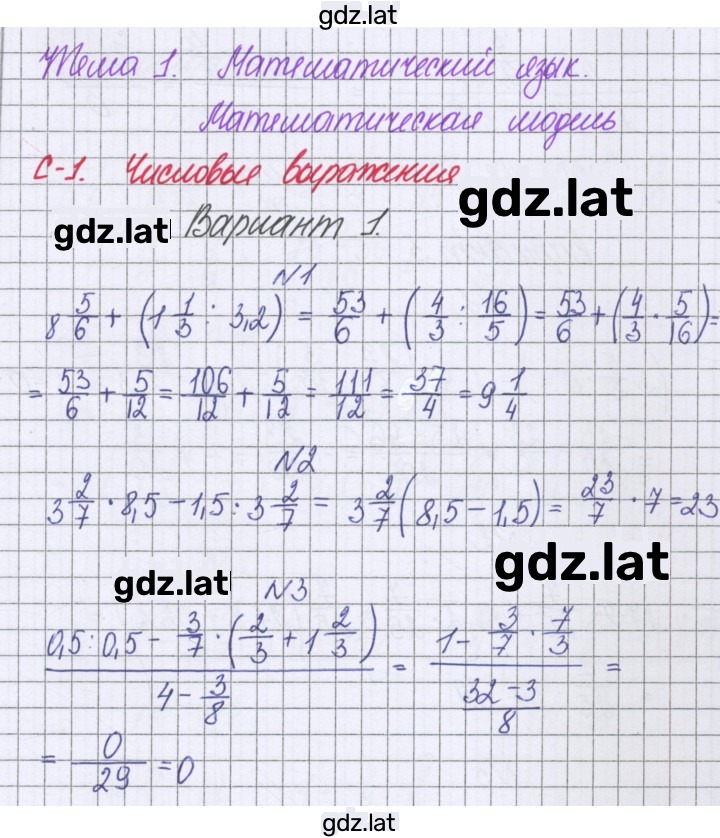 gdz.lat
Тема 1. Математический язык.
Математическая модель
С-1. Числовые выражения
gdz.lat
gdz.lat Вариант 1.
N1
8 5/6 + (1 1/3 : 3,2) = 53/6 + (4/3 : 16/5) = 53/6 + (4/3 · 5/16) =
= 53/6 + 5/12 = 106/12 + 5/12 = 111/12 = 37/4 = 9 1/4
N2
3 2/7 · 8,5 - 1,5 : 3 2/7 = 3 2/7 (8,5 - 1,5) = 23/7 · 7 = 23
gdz.lat
gdz.lat N3
(0,5 : 0,5 - 3/7 · (2/3 + 1 2/3)) / (4 - 3/8) = (1 - 3/7 · 7/3) / ((32 - 3)/8) =
= 0/29 = 0
gdz.lat